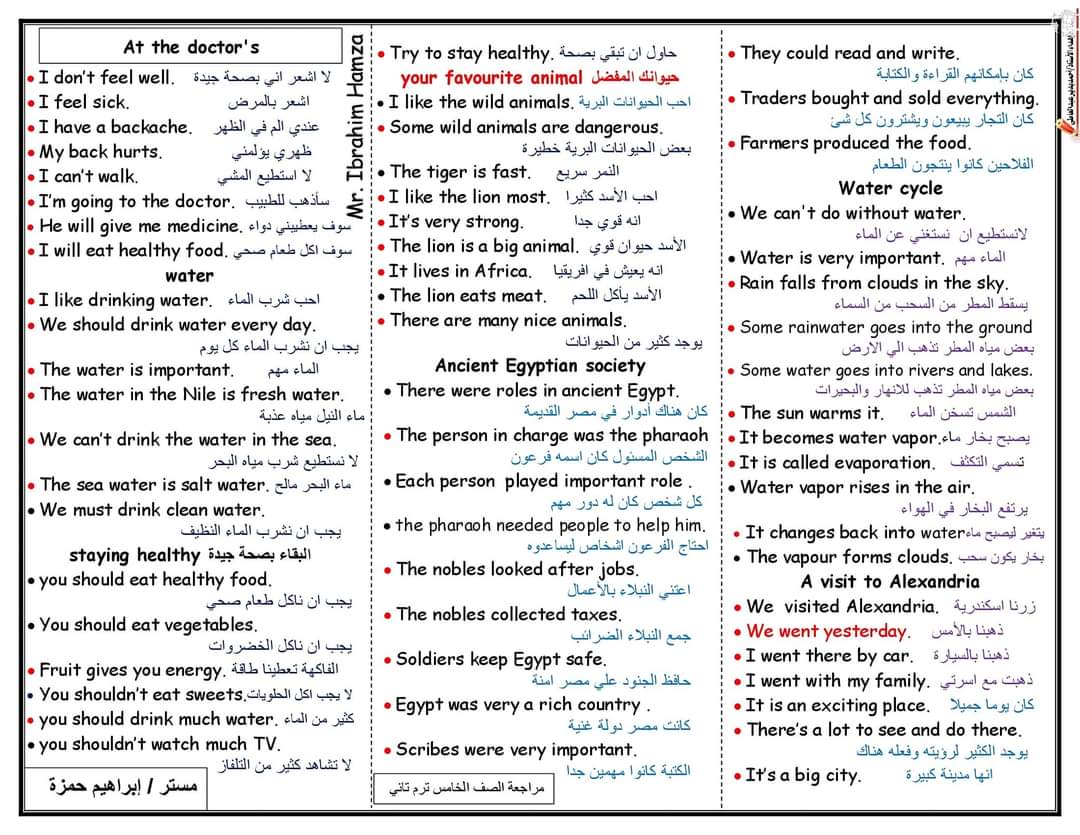 At the doctor's
• I don't feel well. لا اشعر اني بصحة جيدة
• I feel sick. اشعر بالمرض
• I have a backache. عندي الم في الظهر
• My back hurts. ظهري يؤلمني
• I can't walk. لا استطيع المشي
• I'm going to the doctor. سأذهب للطبيب
• He will give me medicine. سوف يعطيبني دواء
• I will eat healthy food. سوف اكل طعام صحي
water
• I like drinking water. احب شرب الماء
• We should drink water every day.
يجب ان نشرب الماء كل يوم
• The water is important. الماء مهم
• The water in the Nile is fresh water.
ماء النيل مياه عذبة
• We can't drink the water in the sea.
لا نستطيع شرب مياه البحر
• The sea water is salt water. ماء البحر مالح
• We must drink clean water.
يجب ان نشرب الماء النظيف
staying healthy البقاء بصحة جيدة
• you should eat healthy food.
يجب ان ناكل طعام صحي
• You should eat vegetables.
يجب ان ناكل الخضروات
• Fruit gives you energy. الفاكهة تعطينا طاقة
• You shouldn't eat sweets. لا يجب اكل الحلويات
• you should drink much water. كثير من الماء
• you shouldn't watch much TV.
لا تشاهد كثير من التلفاز
مستر / إبراهيم حمزة
Mr. Ibrahim Hamza
• Try to stay healthy. حاول ان تبقي بصحة
your favourite animal حيوانك المفضل
• I like the wild animals. احب الحيوانات البرية
• Some wild animals are dangerous.
بعض الحيوانات البرية خطيرة
• The tiger is fast. النمر سريع
• I like the lion most. احب الأسد كثيرا
• It's very strong. انه قوي جدا
• The lion is a big animal. الأسد حيوان قوي
• It lives in Africa. انه يعيش في افريقيا
• The lion eats meat. الأسد يأكل اللحم
• There are many nice animals.
يوجد كثير من الحيوانات
Ancient Egyptian society
• There were roles in ancient Egypt.
كان هناك أدوار في مصر القديمة
• The person in charge was the pharaoh
الشخص المسئول كان اسمه فرعون
• Each person played important role .
كل شخص كان له دور مهم
• the pharaoh needed people to help him.
احتاج الفرعون اشخاص ليساعدوه
• The nobles looked after jobs.
اعتني النبلاء بالأعمال
• The nobles collected taxes.
جمع النبلاء الضرائب
• Soldiers keep Egypt safe.
حافظ الجنود علي مصر امنة
• Egypt was very a rich country .
كانت مصر دولة غنية
• Scribes were very important.
الكتبة كانوا مهمين جدا
مراجعة الصف الخامس ترم تاني
• They could read and write.
كان بإمكانهم القراءة والكتابة
• Traders bought and sold everything.
كان التجار يبيعون ويشترون كل شئ
• Farmers produced the food.
الفلاحين كانوا ينتجون الطعام
Water cycle
• We can't do without water.
لانستطيع ان نستغني عن الماء
• Water is very important. الماء مهم
• Rain falls from clouds in the sky.
يسقط المطر من السحب من السماء
• Some rainwater goes into the ground
بعض مياه المطر تذهب الي الارض
• Some water goes into rivers and lakes.
بعض مياه المطر تذهب للانهار والبحيرات
• The sun warms it. الشمس تسخن الماء
• It becomes water vapor. يصبح بخار ماء
• It is called evaporation. تسمي التكثف
• Water vapor rises in the air.
يرتفع البخار في الهواء
• It changes back into water يتغير ليصبح ماء
• The vapour forms clouds. بخار يكون سحب
A visit to Alexandria
• We visited Alexandria. زرنا اسكندرية
• We went yesterday. ذهبنا بالأمس
• I went there by car. ذهبنا بالسيارة
• I went with my family. ذهبت مع اسرتي
• It is an exciting place. كان يوما جميلا
• There's a lot to see and do there.
يوجد الكثير لرؤيته وفعله هناك
• It's a big city. انها مدينة كبيرة